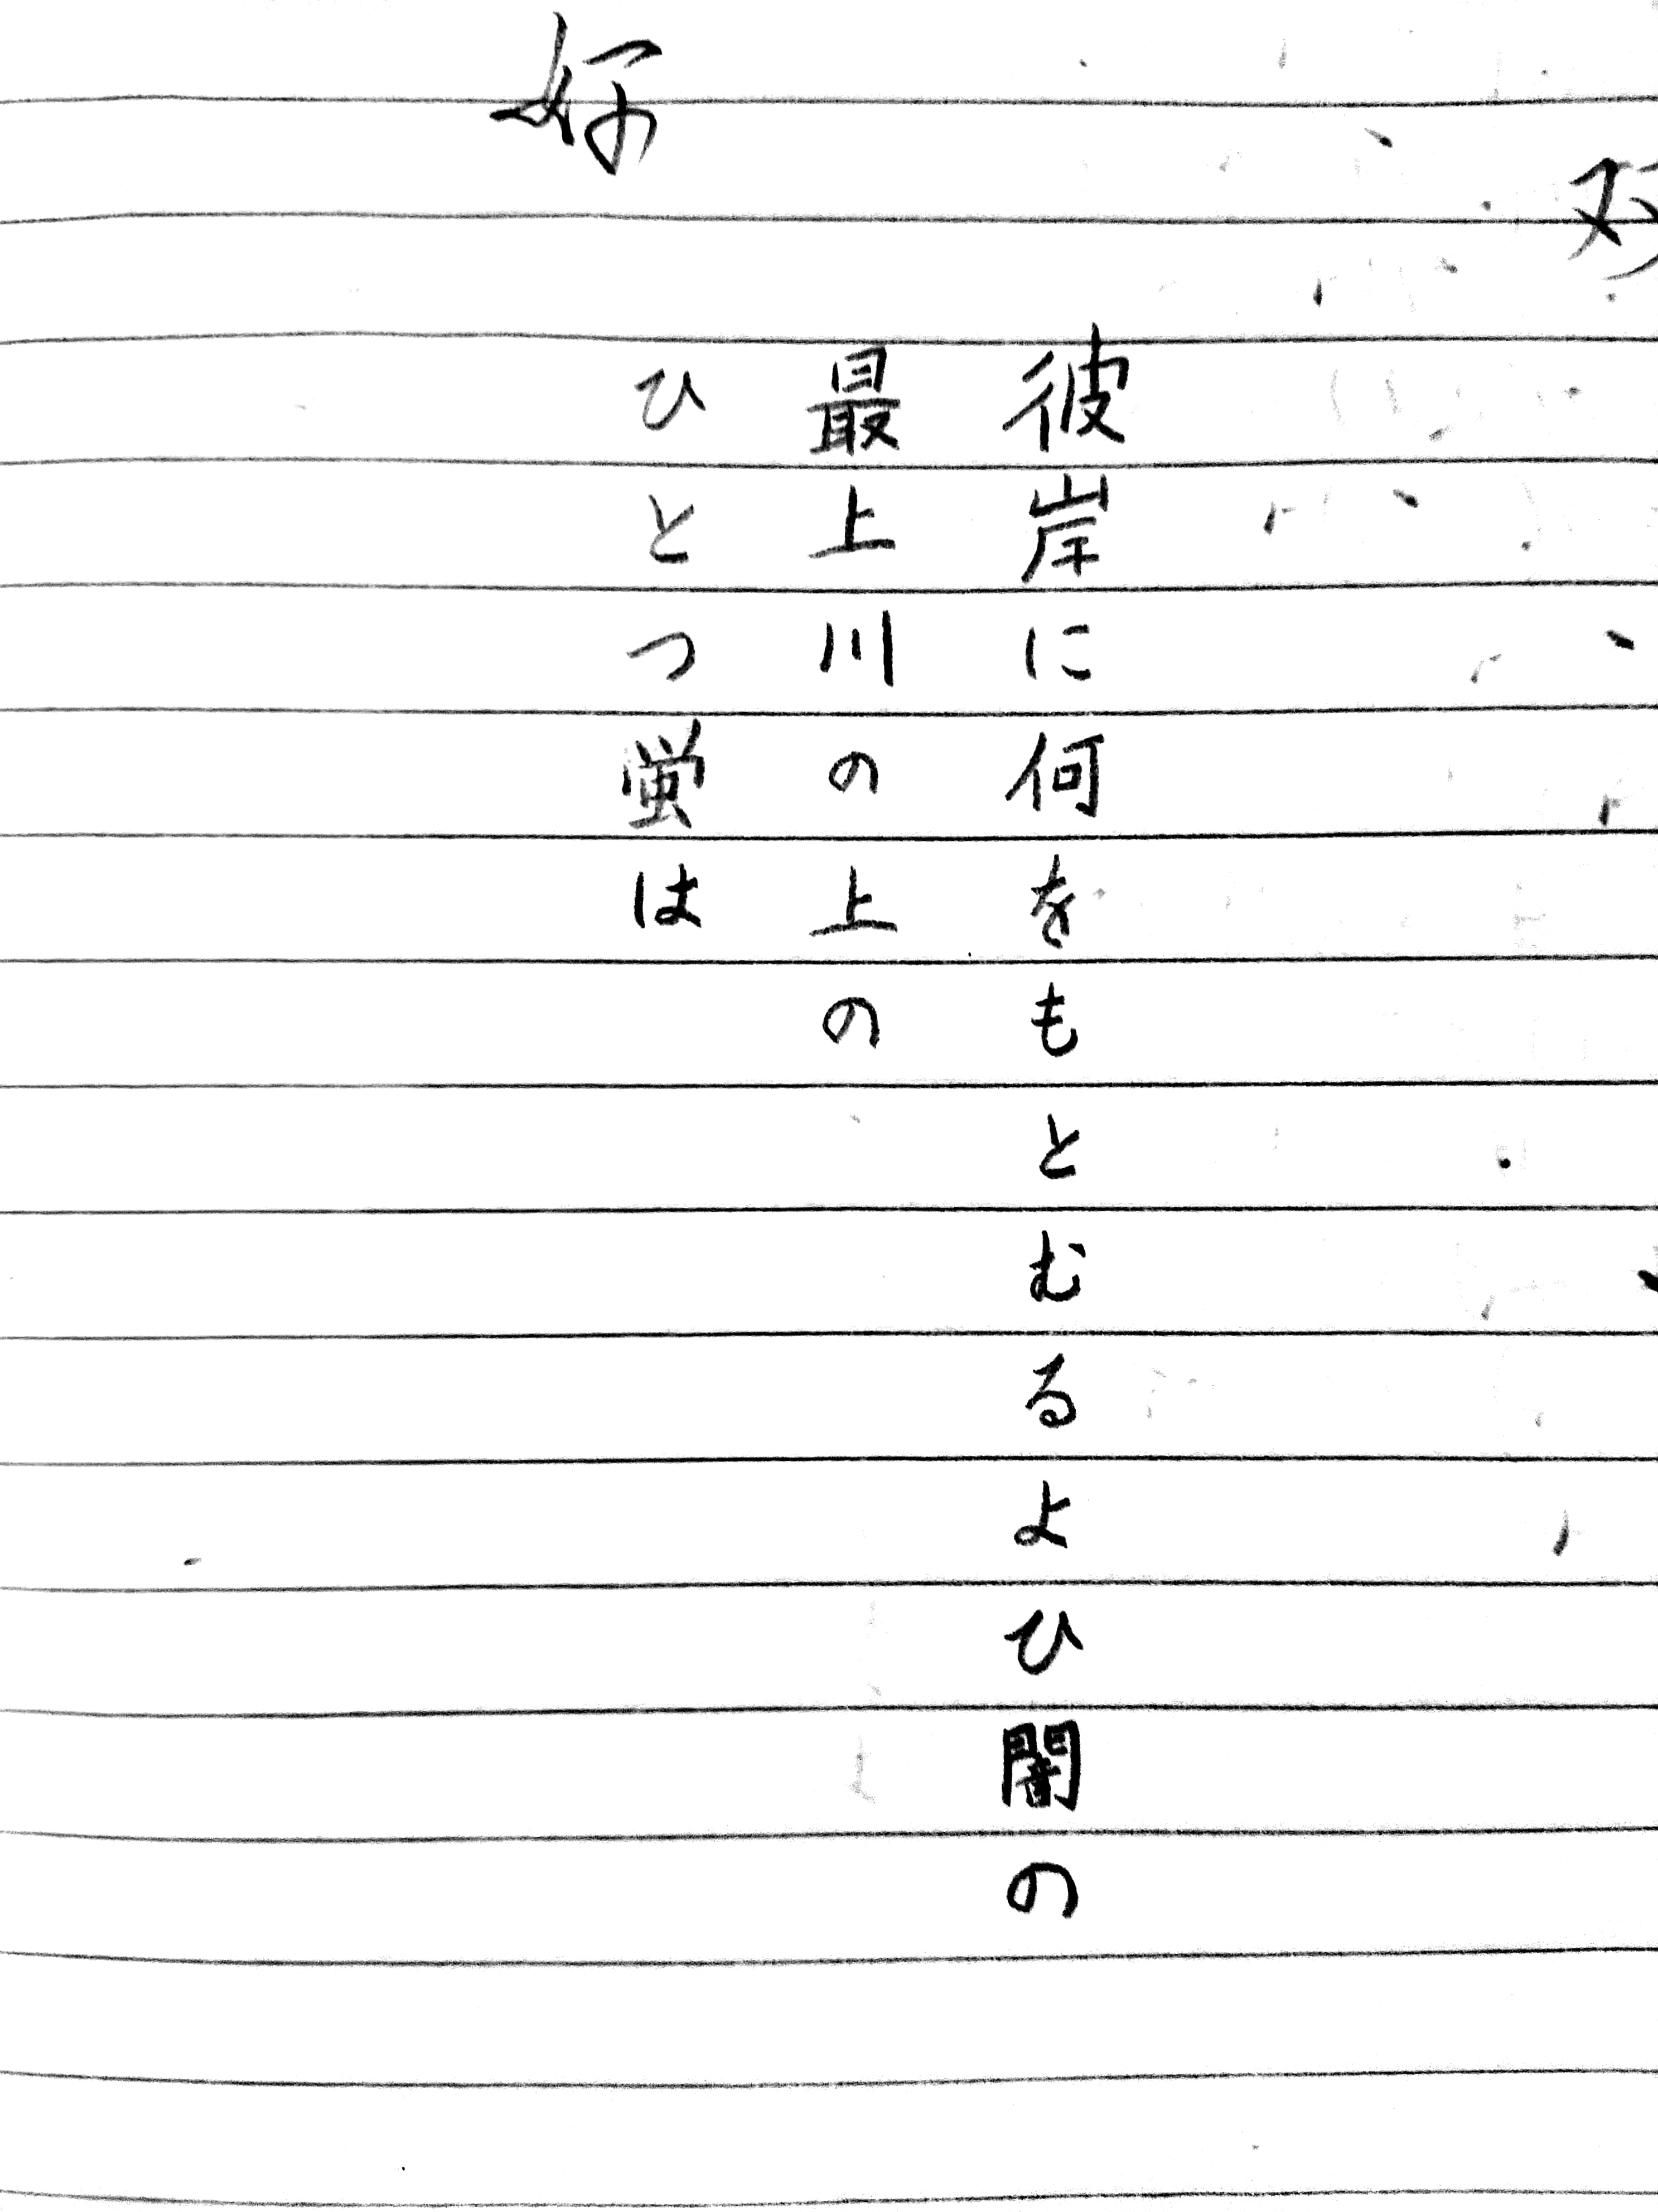 彼岸に何をもとむるよひ闇の
最上川の上の
ひとつ蛍は
好